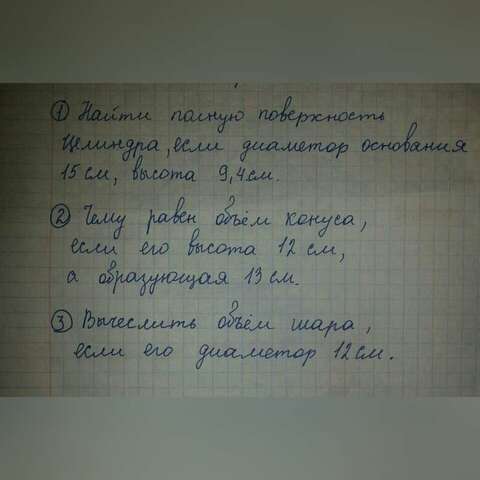 ① Найти полную поверхность
Целиндра, если диаметор основания
15 см, высота 9,4 см.
② Чему равен объём конуса,
если его высота 12 см,
а образующая 13 см.
③ Вычеслить объём шара,
если его диаметор 12 см.